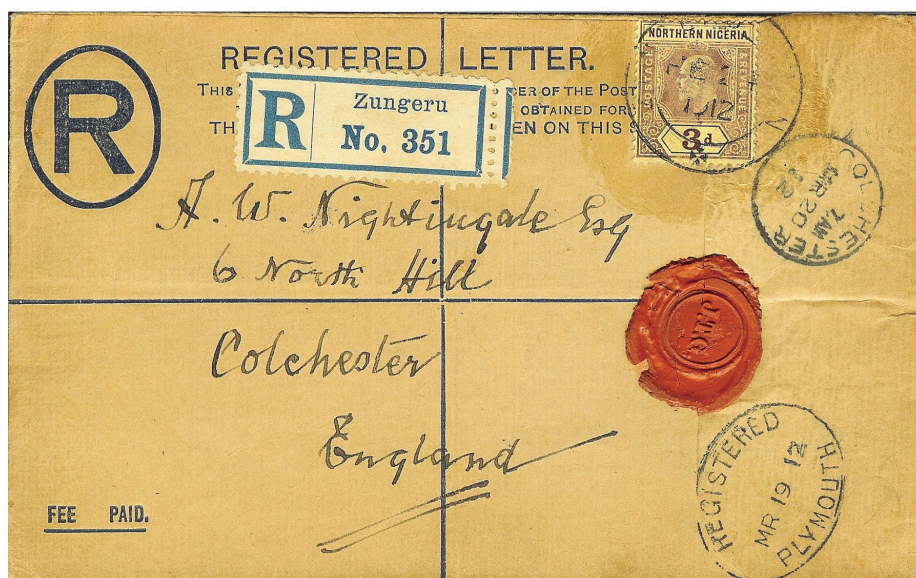 REGISTERED LETTER.
R
THIS
CER OF THE POST
OBTAINED FOR
TH
EN ON THIS
R
Zungeru
No. 351
NORTHERN NIGERIA
POSTAGE
& REVENUE
3d
1912
COLCHESTER
7 AM
MR 20
12
A. W. Nightingale Esq
6 North Hill
Colchester
England
REGISTERED
MR 19 12
PLYMOUTH
FEE PAID.